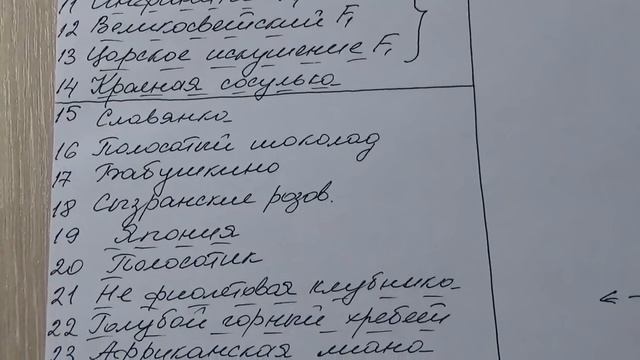 11
12 Великосвейский F1
13 Царское искушение F1
14 Красная сосулька
15 Славянка
16 Полосатый шоколад
17 Бабушкино
18 Сызранские розов.
19 Япония
20 Полосатик
21 Не фиолетовая клубника
22 Голубой горный хребей
23 Африканская лиана